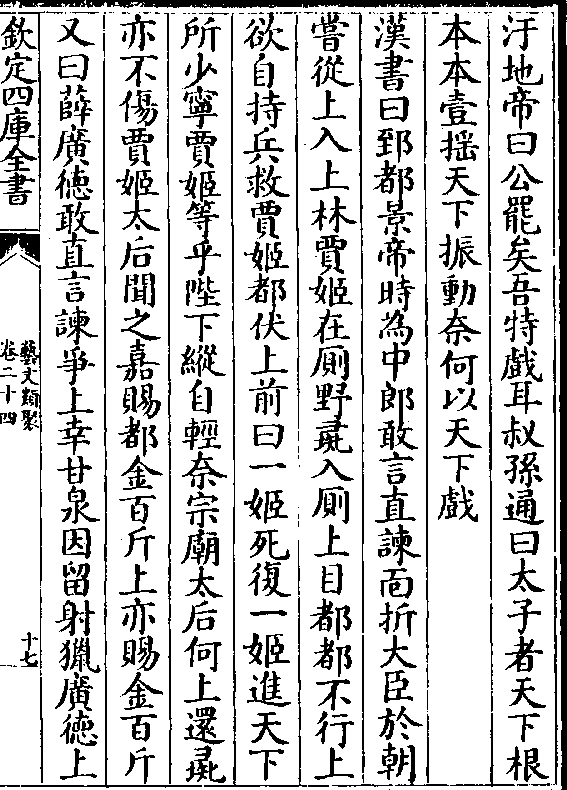 汙地帝曰公罷矣吾特戲耳叔孫通曰太子者天下根
本本壹揺天下振動奈何以天下戲
漢書曰郅都景帝時為中郎敢言直諫面折大臣於朝
嘗從上入上林賈姬在厠野彘入厠上目都都不行上
欲自持兵救賈姬都伏上前曰一姬死復一姬進天下
所少寧賈姬等乎陛下縱自輕奈宗廟太后何上還彘
亦不傷賈姬太后聞之嘉賜都金百斤上亦賜金百斤
又曰薛廣德敢直言諫爭上幸甘泉因留射獵廣德上
欽定四庫全書
藝文類聚
卷二十四
十七